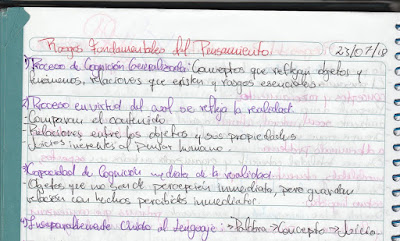 Rasgos Fundamentales del Pensamiento 23/07/18
1) Proceso de Cognición Generalizada: Conceptos que reflejan objetos y
fenómenos, relaciones que existen y rasgos esenciales.
2) Proceso en virtud del cual se refleja la realidad.
- Comparan el contenido
- Relaciones entre los objetos y sus propiedades
- Juicios inherentes al pensar humano.
3) Capacidad de Cognición mediata de la realidad
- Objetos que no son de percepción inmediata, pero guardan
relación con hechos percibidos inmediatos
4) Inseparablemente Unido al Lenguaje: Palabra → Concepto → Juicio.